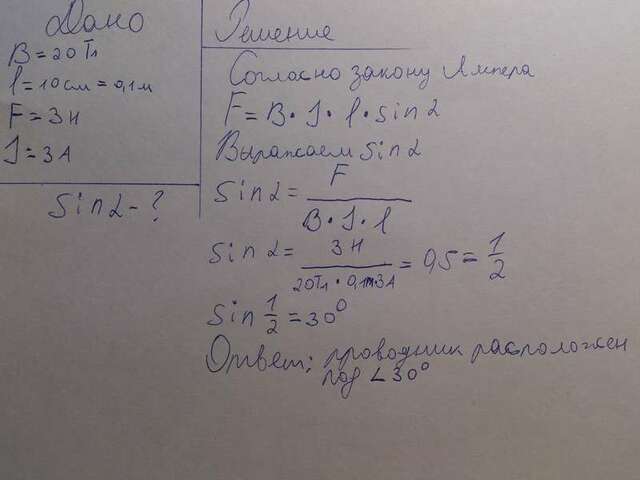 Дано
B = 20 Тл
l = 10 см = 0,1 м
F = 3 Н
J = 3 А
Sin α - ?
Решение
Согласно закону Ампера
F = B · J · l · sin α
Выражаем Sin α
Sin α = F / B · J · l
Sin α = 3 Н / 20 Тл · 0,1 м · 3 А = 0,5 = 1/2
Sin 1/2 = 30°
Ответ: проводник расположен
под ∠ 30°